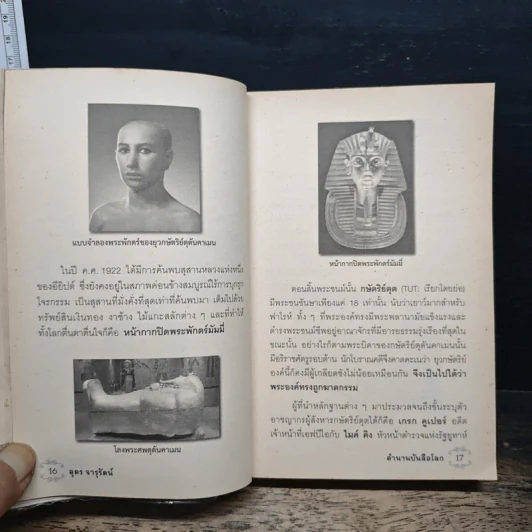 แบบจำลองพระพักตร์ของยุวกษัตริย์ตุตันคาเมน
ในปี ค.ศ. 1922 ได้มีการค้นพบสุสานหลวงแห่งหนึ่ง
ของอียิปต์ ซึ่งยังคงอยู่ในสภาพค่อนข้างสมบูรณ์ไร้การบุกรุก
โจรกรรม เป็นสุสานที่มั่งคั่งที่สุดเท่าที่ค้นพบมา เต็มไปด้วย
ทรัพย์สินเงินทอง งาช้าง ไม้แกะสลักต่าง ๆ และที่ทำให้
ทั้งโลกตื่นตาตื่นใจก็คือ หน้ากากปิดพระพักตร์มัมมี่
โลงพระศพตุตันคาเมน
16 อุดร จารุรัตน์
หน้ากากปิดพระพักตร์มัมมี่
ตอนสิ้นพระชนม์นั้น กษัตริย์ตุต (TUT: เรียกโดยย่อ)
มีพระชนชันษาเพียงแค่ 18 เท่านั้น นับว่าเยาว์มากสำหรับ
ฟาโรห์ ทั้ง ๆ ที่พระองค์ทรงมีพระพลานามัยแข็งแรงและ
ดำรงพระชนม์ชีพอยู่อาณาจักรที่มีอารยธรรมรุ่งเรืองที่สุดใน
ขณะนั้น อย่างไรก็ตามพระบิดาของกษัตริย์ตุตันคาเมนนั้น
มีอริราชศัตรูรอบด้าน นักโบราณคดีจึงคาดคะเนว่า ยุวกษัตริย์
องค์นี้ก็คงมีผู้เกลียดชังไม่น้อยเหมือนกัน จึงเป็นไปได้ว่า
พระองค์ทรงถูกฆาตกรรม
ผู้ที่นำหลักฐานต่าง ๆ มาประมวลจนถึงขั้นระบุตัว
อาชญากรผู้สังหารกษัตริย์ตุตได้ก็คือ เกรก คูเปอร์ อดีต
เจ้าหน้าที่เอฟบีไอกับ ไมค์ คิง หัวหน้าตำรวจแห่งรัฐยูทาห์
ตำนานบันลือโลก 17